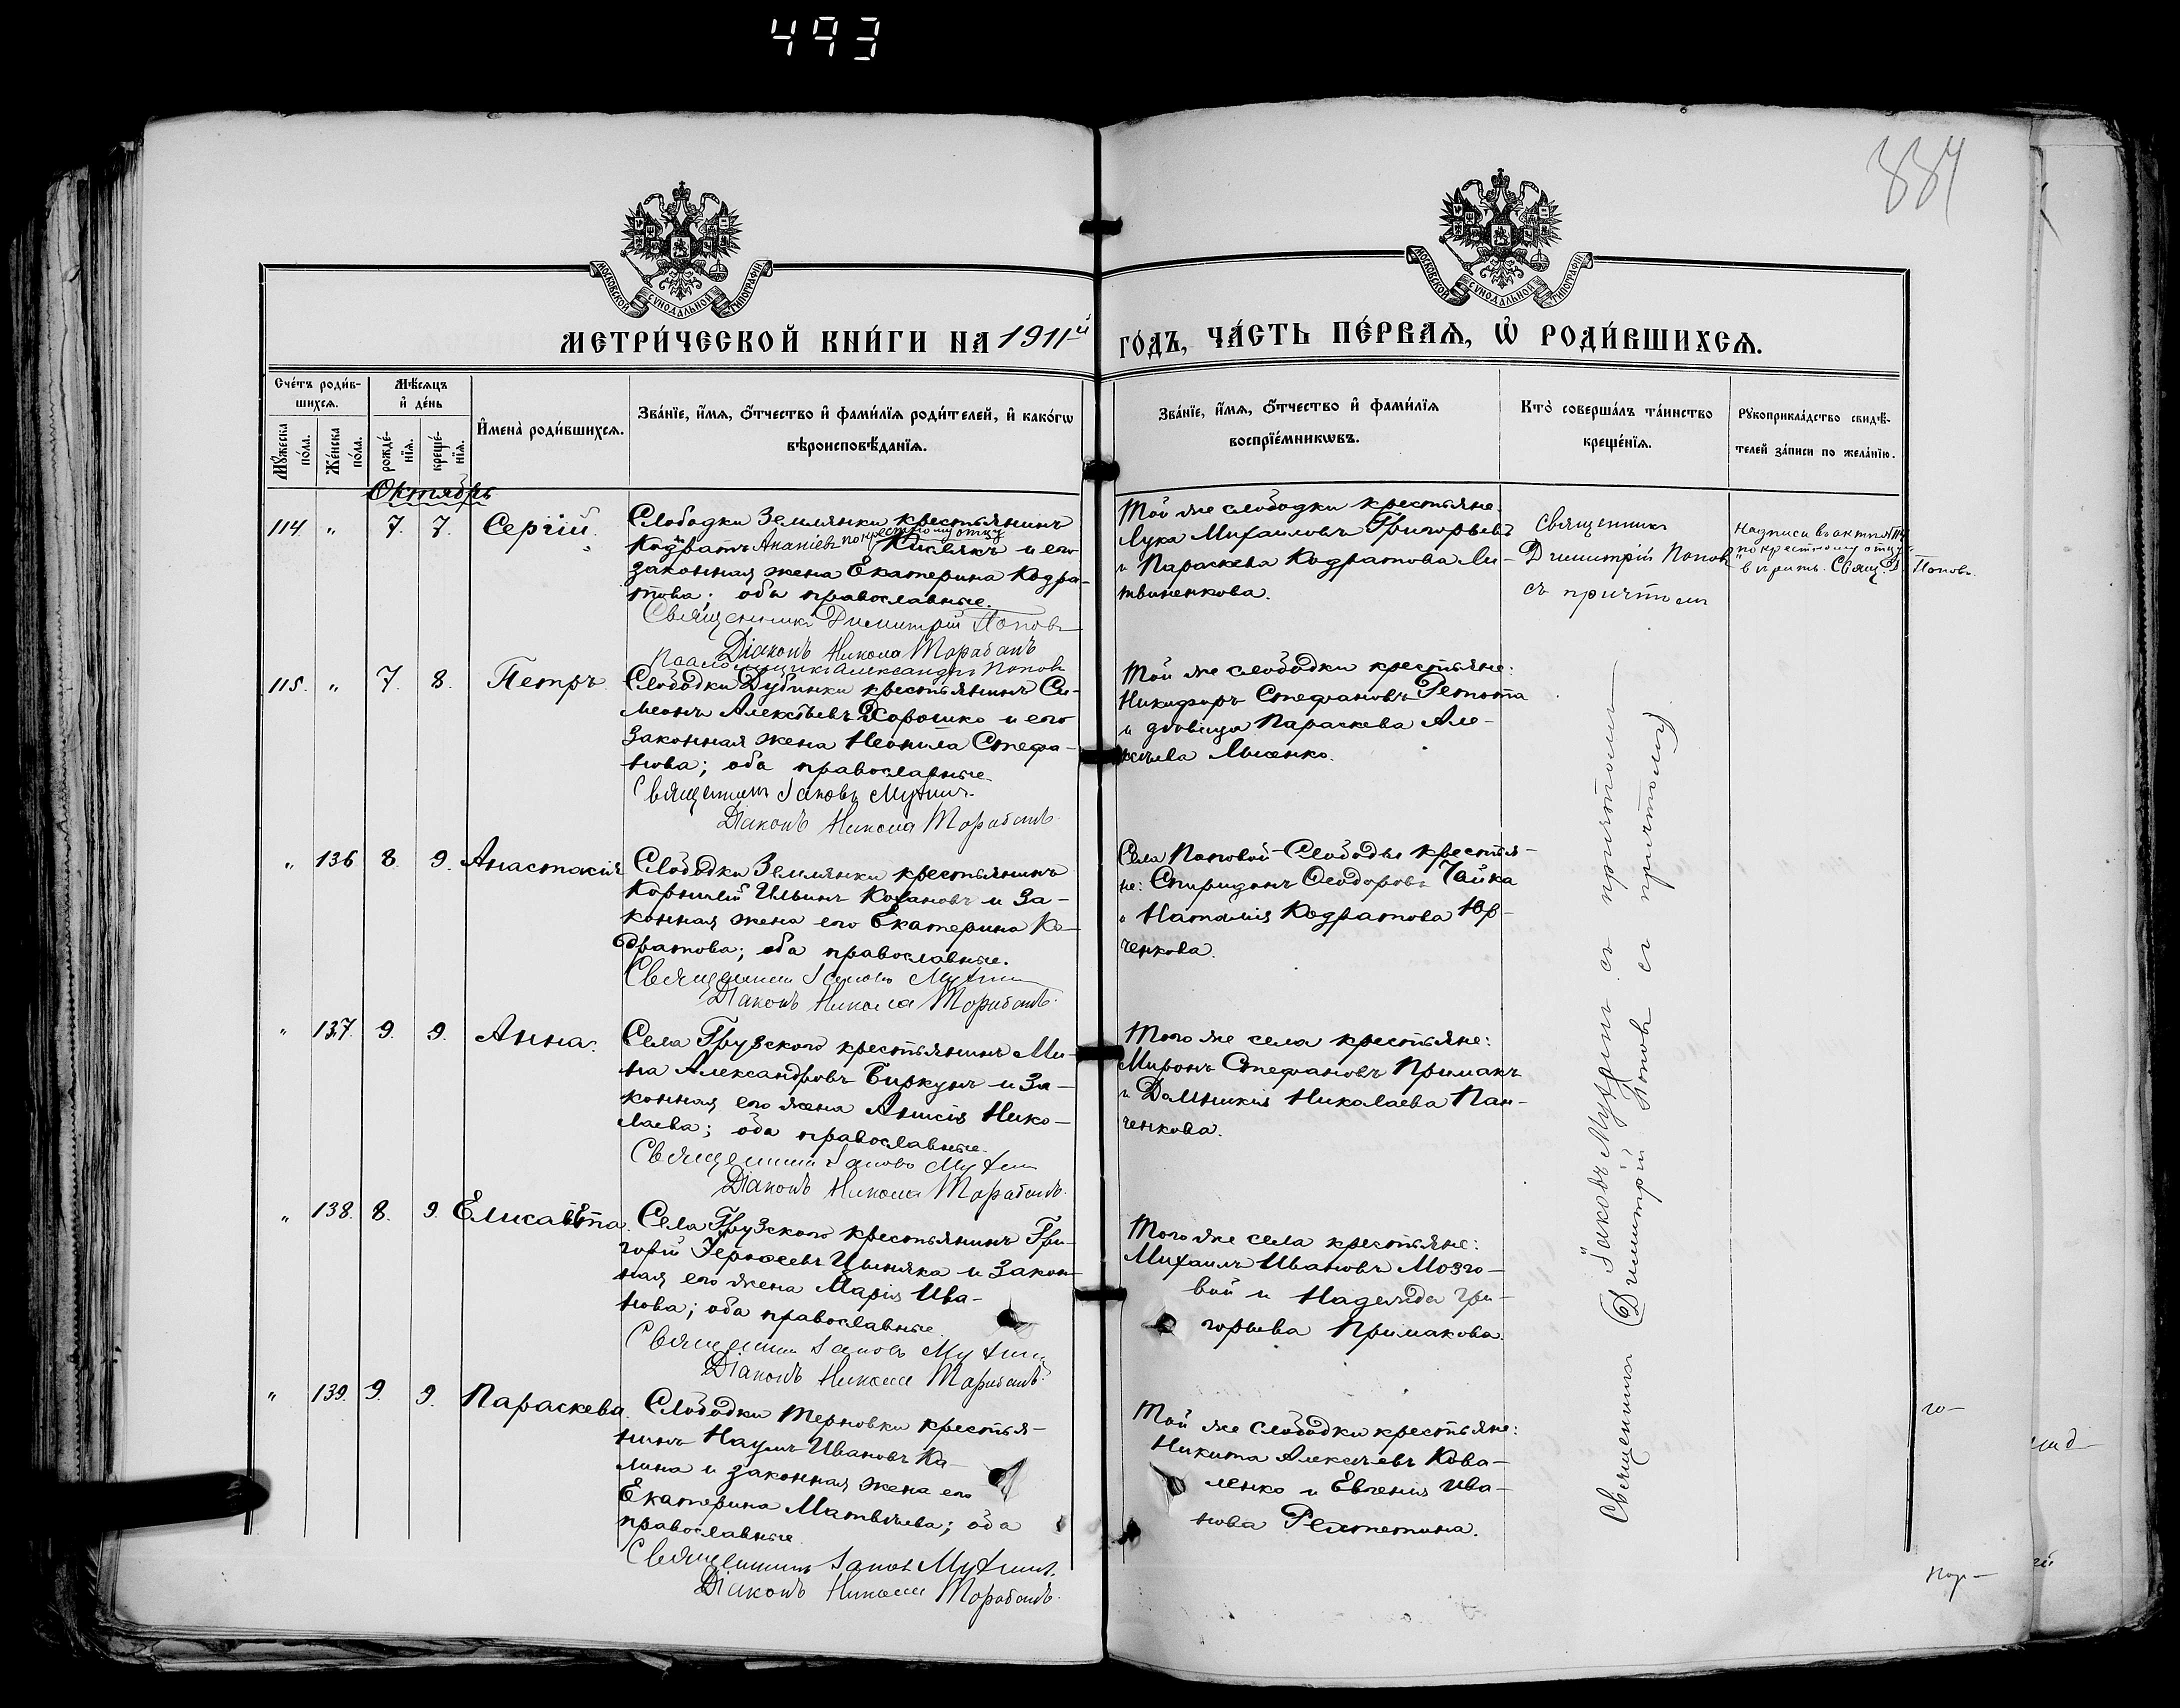 493
334
МОСКОВСКОЙ СѴНОДАЛЬНОЙ ТИПОГРАФІИ
МОСКОВСКОЙ СѴНОДАЛЬНОЙ ТИПОГРАФІИ
МЕТРИ́ЧЕСКОЙ КНИ́ГИ НА 1911й ГО́ДЪ, ЧА́СТЬ ПЕ́РВАЯ, Ѡ҆ РОДИ́ВШИХСЯ.
Сче́тъ роди́вшихся.
Мѣ́сяцъ и҆ де́нь
Мꙋ́жеска по́ла.
Же́нска по́ла.
рожде́нїя.
креще́нїя.
И҆мена̀ роди́вшихся.
Зва́нїе, и҆́мя, ѻ҆́тчество и҆ фами́лїя роди́телей, и҆ како́гѡ
вѣроисповѣ́данїя.
Зва́нїе, и҆́мя, ѻ҆́тчество и҆ фами́лїя
воспрїе́мникѡвъ.
Кто̀ соверша́лъ та́инство
креще́нїя.
Рꙋкоприкла́дство свидѣ́-
телей за́писи по жела́нїю.
Октябрь
114. " 7. 7. Сергій.
Слободки Землянки крестьянинъ
Кодратъ Ананіевъ по крестному отцу Кисвякъ и его
законная жена Екатерина Кодра-
това; оба православные.
Священникъ Димитрій Поповъ
Діаконъ Никола Тарабанъ
Псаломщикъ Александръ Поповъ
Той же слободки крестьяне:
Лука Михаиловъ Григорьевъ
и Параскева Кодратова Ли-
твиненкова.
Священникъ
Димитрій Поповъ
съ причтомъ
Надписи въ актѣ №114
"по крестному отцу"
вѣрить. Свящ. Д. Поповъ.
115. " 7. 8. Петръ
Слободки Дубинки крестьянинъ Си-
меонъ Алексѣевъ Хорошко и его
законная жена Неонила Стефа-
нова; оба православные.
Священникъ Іаковъ Мухинъ.
Діаконъ Никола Тарабанъ.
Той же слободки крестьяне:
Никифоръ Стефановъ Репета
и дѣвица Параскева Але-
ксѣева Лысенко.
" 136 8. 9. Анастасія
Слободки Землянки крестьянинъ
Корнилій Ильинъ Кохановъ и за-
конная жена его Екатерина Ко-
дратова; оба православные.
Священникъ Іаковъ Мухинъ
Діаконъ Никола Тарабанъ.
Села Поповой-Слободы крестья-
не: Спиридонъ Ѳеодоровъ Чайка
и Наталія Кодратова Юр-
ченкова.
" 137. 9. 9. Анна.
Села Грузского крестьянинъ Ми-
на Александровъ Биркунъ и за-
конная его жена Анисія Нико-
лаева; оба православные.
Священникъ Іаковъ Мухинъ
Діаконъ Никола Тарабанъ.
Того же села крестьяне:
Миронъ Стефановъ Примакъ
и Домникія Николаева Пан-
ченкова.
" 138. 8. 9. Елисавета.
Села Грузского крестьянинъ Гри-
горій Іероѳеевъ Цыняка и закон-
ная его жена Марія Ива-
нова; оба православные
Священникъ Іаковъ Мухинъ
Діаконъ Никола Тарабанъ.
Того же села крестьяне:
Михаилъ Ивановъ Мозго-
вой и Надежда Гри-
горьева Примакова.
" 139. 9. 9. Параскева.
Слободки Терновки крестья-
нинъ Наумъ Ивановъ Ка-
лина и законная жена его
Екатерина Матвѣева; оба
православные
Священникъ Іаковъ Мухинъ.
Діаконъ Никола Тарабанъ.
Той же слободки крестьяне:
Никита Алексѣевъ Кова-
ленко и Евгенія Ива-
нова
Священники Іаковъ Мухинъ съ причтомъ
Димитрій Поповъ съ причтомъ
го-
пор-